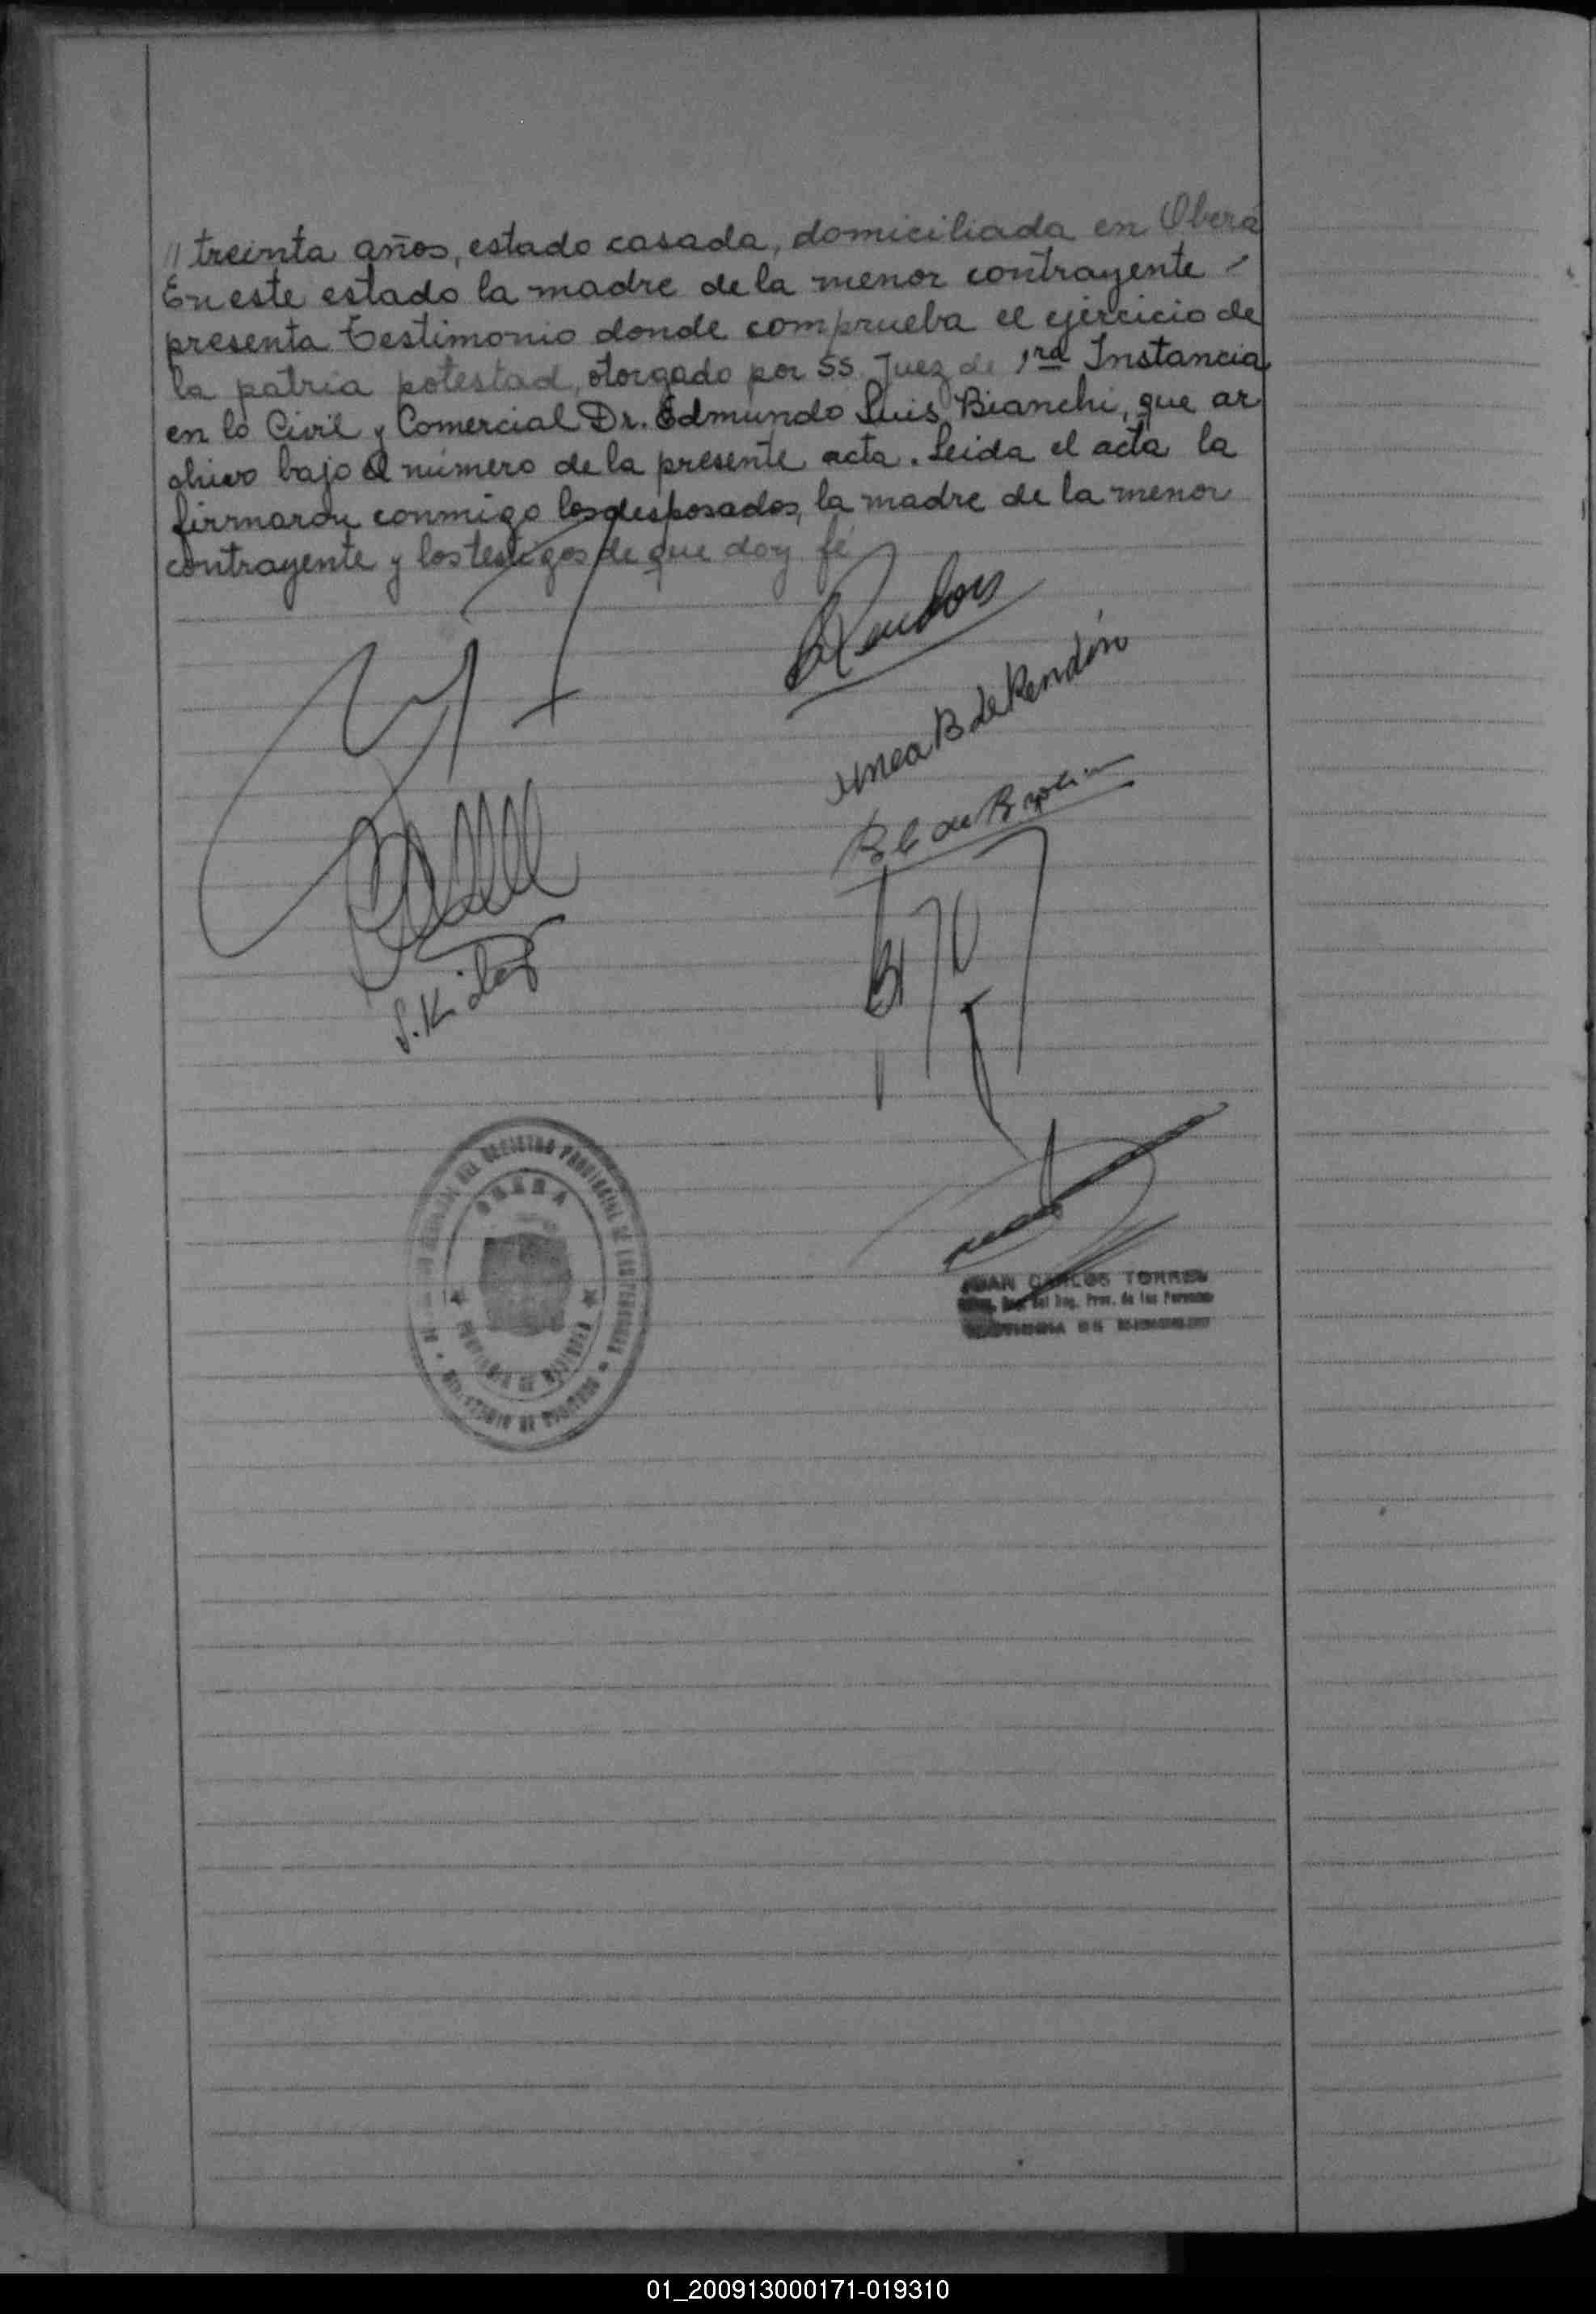 // treinta años, estado casada, domiciliada en Oberá
En este estado la madre de la menor contrayente -
presenta testimonio donde comprueba el ejercicio de
la patria potestad, otorgado por SS. Juez de 1ra Instancia
en lo Civil y Comercial Dr. Edmundo Luis Bianchi, que ar
chivo bajo el número de la presente acta. Leida el acta la
firmaron conmigo los desposados, la madre de la menor
contrayente y los testigos de que doy fé
B. de Rendón
OBERA
PROVINCIA DE MISIONES
DEL REGISTRO PROVINCIAL DE LAS PERSONAS
MINISTERIO DE GOBIERNO
JUAN CARLOS TORRES
del Reg. Prov. de las Personas
01_200913000171-019310